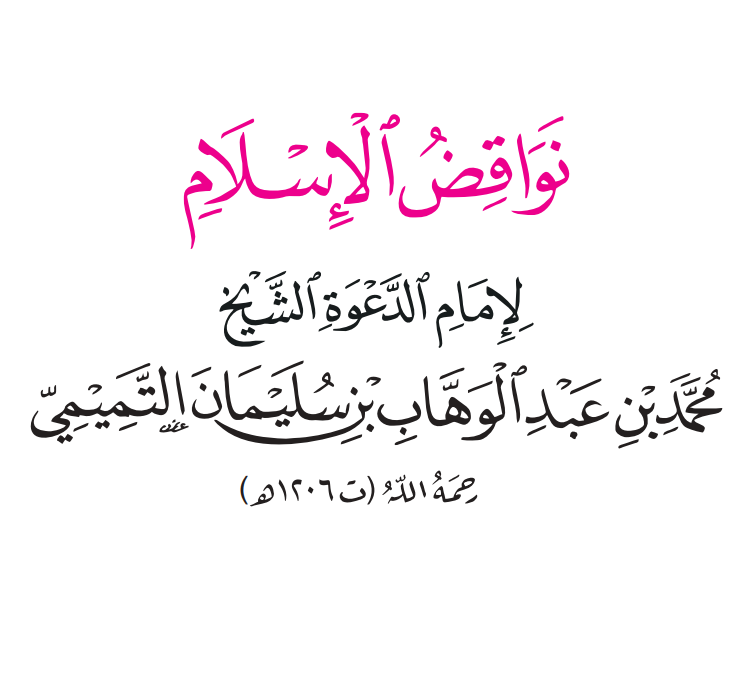 نَوَاقِضُ ٱلْإِسْلَامِ
لِإِمَامِ ٱلدَّعْوَةِ ٱلشَّيْخِ
مُحَمَّدِ بْنِ عَبْدِ ٱلْوَهَّابِ بْنِ سُلَيْمَانَ التَّمِيْمِيِّ
رَحِمَهُ اللهُ (ت ١٢٠٦هـ)